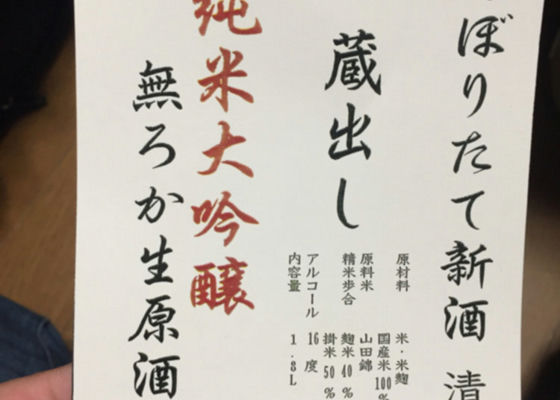 ぼりたて新酒 清
原材料 米・米麹
国産米100%
原料米 山田錦
精米歩合 麹米40%
掛米50%
アルコール 16度
内容量 1.8L
蔵出し
純米大吟醸
無ろか生原酒